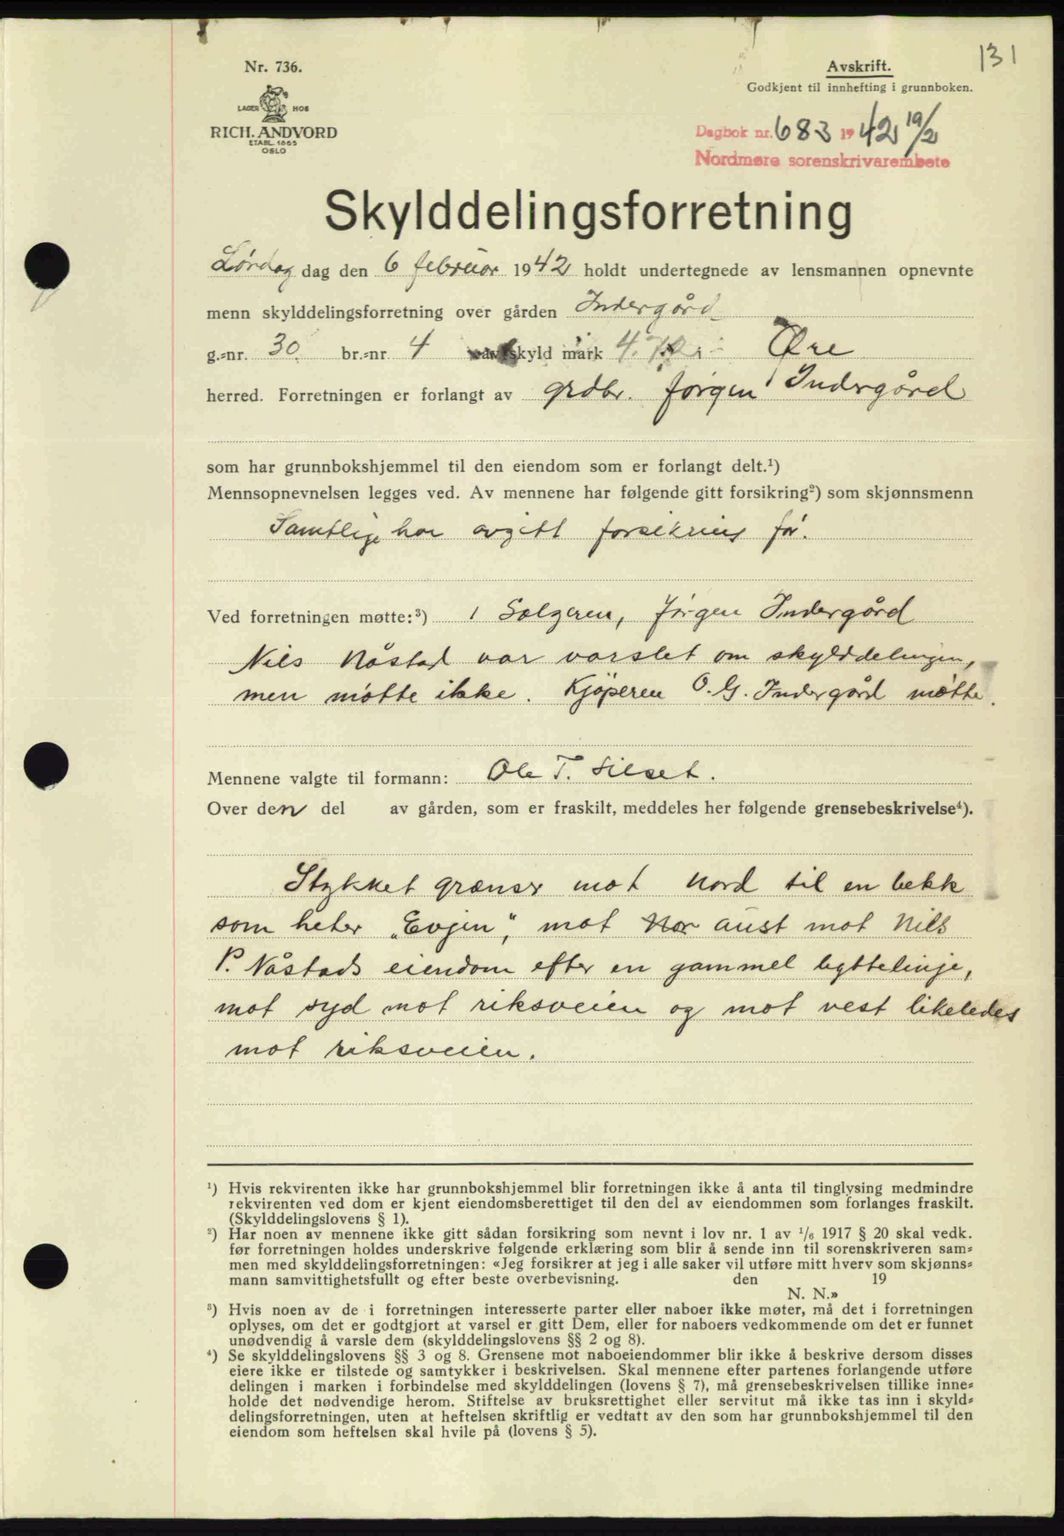 131
Nr. 736.
LAGER HOS
RICH. ANDVORD
ETABL. 1865
OSLO
Avskrift.
Godkjent til innhefting i grunnboken.
Dagbok nr. 683 1942 19/2
Nordmøre sorenskrivarembete
Skylddelingsforretning
Lørdag dag den 6 februar 1942 holdt undertegnede av lensmannen opnevnte
menn skylddelingsforretning over gården Indergård
g.-nr. 30. br.-nr 4 av skyld mark 4.70 i Øre
herred. Forretningen er forlangt av grdbr. Jørgen Indergård
som har grunnbokshjemmel til den eiendom som er forlangt delt.¹)
Mennsopnevnelsen legges ved. Av mennene har følgende gitt forsikring²) som skjønnsmenn
Samtlige har avgitt forsikring før.
Ved forretningen møtte:³) 1 Selgeren, Jørgen Indergård
Nils Nåstad var varslet om skylddelingen,
men møtte ikke. Kjøperen O. G. Indergård møtte.
Mennene valgte til formann: Ole T. Silset.
Over den del av gården, som er fraskilt, meddeles her følgende grensebeskrivelse⁴).
Stykket grænser mot nord til en bekk
som heter „Evjen", mot Nor aust mot Nils
P. Nåstads eiendom efter en gammel byttelinje,
mot syd mot riksveien og mot vest likeledes
mot riksveien.
¹) Hvis rekvirenten ikke har grunnbokshjemmel blir forretningen ikke å anta til tinglysing medmindre
rekvirenten ved dom er kjent eiendomsberettiget til den del av eiendommen som forlanges fraskilt.
(Skylddelingslovens § 1).
²) Har noen av mennene ikke gitt sådan forsikring som nevnt i lov nr. 1 av ¹/₆ 1917 § 20 skal vedk.
før forretningen holdes underskrive følgende erklæring som blir å sende inn til sorenskriveren sam-
men med skylddelingsforretningen: «Jeg forsikrer at jeg i alle saker vil utføre mitt hverv som skjønns-
mann samvittighetsfullt og efter beste overbevisning. den 19
N. N.»
³) Hvis noen av de i forretningen interesserte parter eller naboer ikke møter, må det i forretningen
oplyses, om det er godtgjort at varsel er gitt Dem, eller for naboers vedkommende om det er funnet
unødvendig å varsle dem (skylddelingslovens §§ 2 og 8).
⁴) Se skylddelingslovens §§ 3 og 8. Grensene mot naboeiendommer blir ikke å beskrive dersom disses
eiere ikke er tilstede og samtykker i beskrivelsen. Skal mennene efter partenes forlangende utføre
delingen i marken i forbindelse med skylddelingen (lovens § 7), må grensebeskrivelsen tillike inne-
holde det nødvendige herom. Stiftelse av bruksrettighet eller servitut må ikke tas inn i skyld-
delingsforretningen, uten at heftelsen skriftlig er vedtatt av den som har grunnbokshjemmel til den
eiendom som heftelsen skal hvile på (lovens § 5).